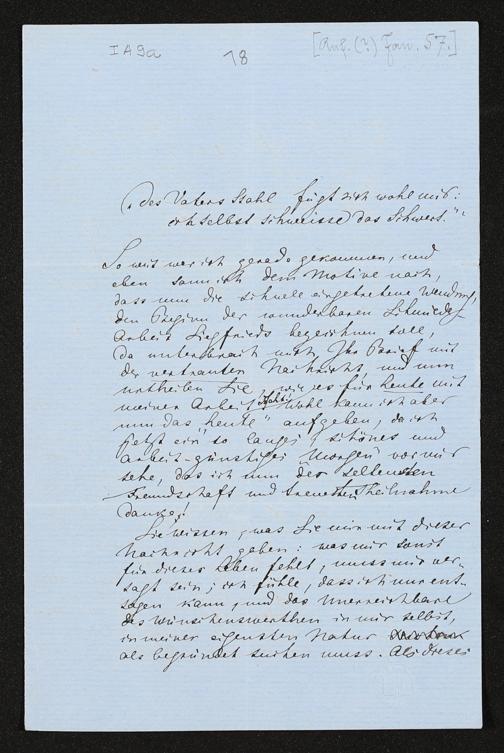 I A 9a
18
[Anf. (?) Jan. 57.]
„des Vaters Stahl fügt sich wohl mir:
ich selbst schweisse das Schwert.“
So weit war ich gerade gekommen, und
eben sann ich dem Motive nach,
dass nun die schnell eingetretene Wendung,
den Beginn der wunderbaren Schmiede-
Arbeit Siegfrieds bezeichnen soll,
da unterbrach mich Ihr Brief mit
der vertrauten Nachricht, und nun
urtheilen Sie, wie es für heute mit
meiner Arbeit steht! Wohl kann ich aber
nun das „heute“ aufgeben, da ich
jetzt ein so langes, schönes und
arbeit-günstiges Morgen vor mir
sehe, das ich nun der seltensten
Freundschaft und treuesten Theilnahme
danke.
Sie wissen, was Sie mir mit dieser
Nachricht geben: was mir sonst
für dieses Leben fehlt, muss mir ver-
sagt sein; ich fühle, dass ich nur ent-
sagen kann, und das Unerreichbare
des Wünschenswerthen in mir selbst,
in meiner eigensten Natur
als begründet suchen muss. Als dieses